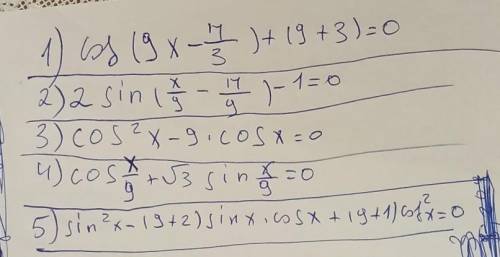 1) cos(9x - π/3) + (9 + 3) = 0
2) 2 sin(x/9 - π/9) - 1 = 0
3) cos²x - 9 · cosx = 0
4) cos x/9 + √3 sin x/9 = 0
5) sin²x - (9+2) sinx · cosx + (9+1) cos²x = 0